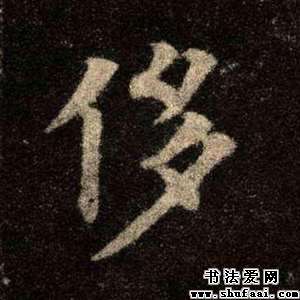 侈
书法爱网
www.shufaai.com